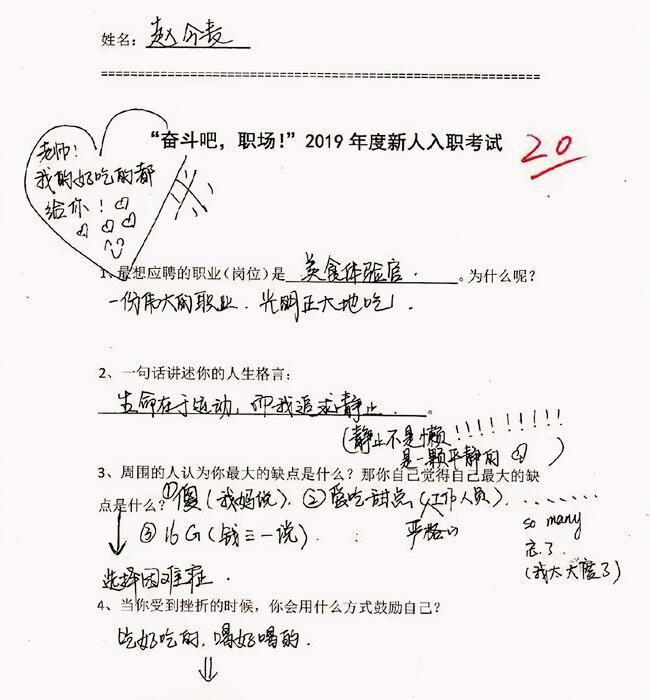 姓名：赵今麦
“奋斗吧，职场！”2019年度新人入职考试
20
老师！
我的好吃的都
给你！
1、最想应聘的职业（岗位）是 美食体验官. 。为什么呢？
一份伟大的职业. 光明正大地吃！.
2、一句话讲述你的人生格言：
生命在于运动，而我追求静止. 。
（静止不是懒！！！！！！！！！
是一颗平静的 ）
3、周围的人认为你最大的缺点是什么？那你自己觉得自己最大的缺
点是什么？①傻（我妈说）. ②爱吃甜点（工作人员）. .......
③16G（钱三一说）.
严格的
so many
忘了.
（我太大度了）
选择困难症.
4、当你受到挫折的时候，你会用什么方式鼓励自己？
吃好吃的，喝好喝的.